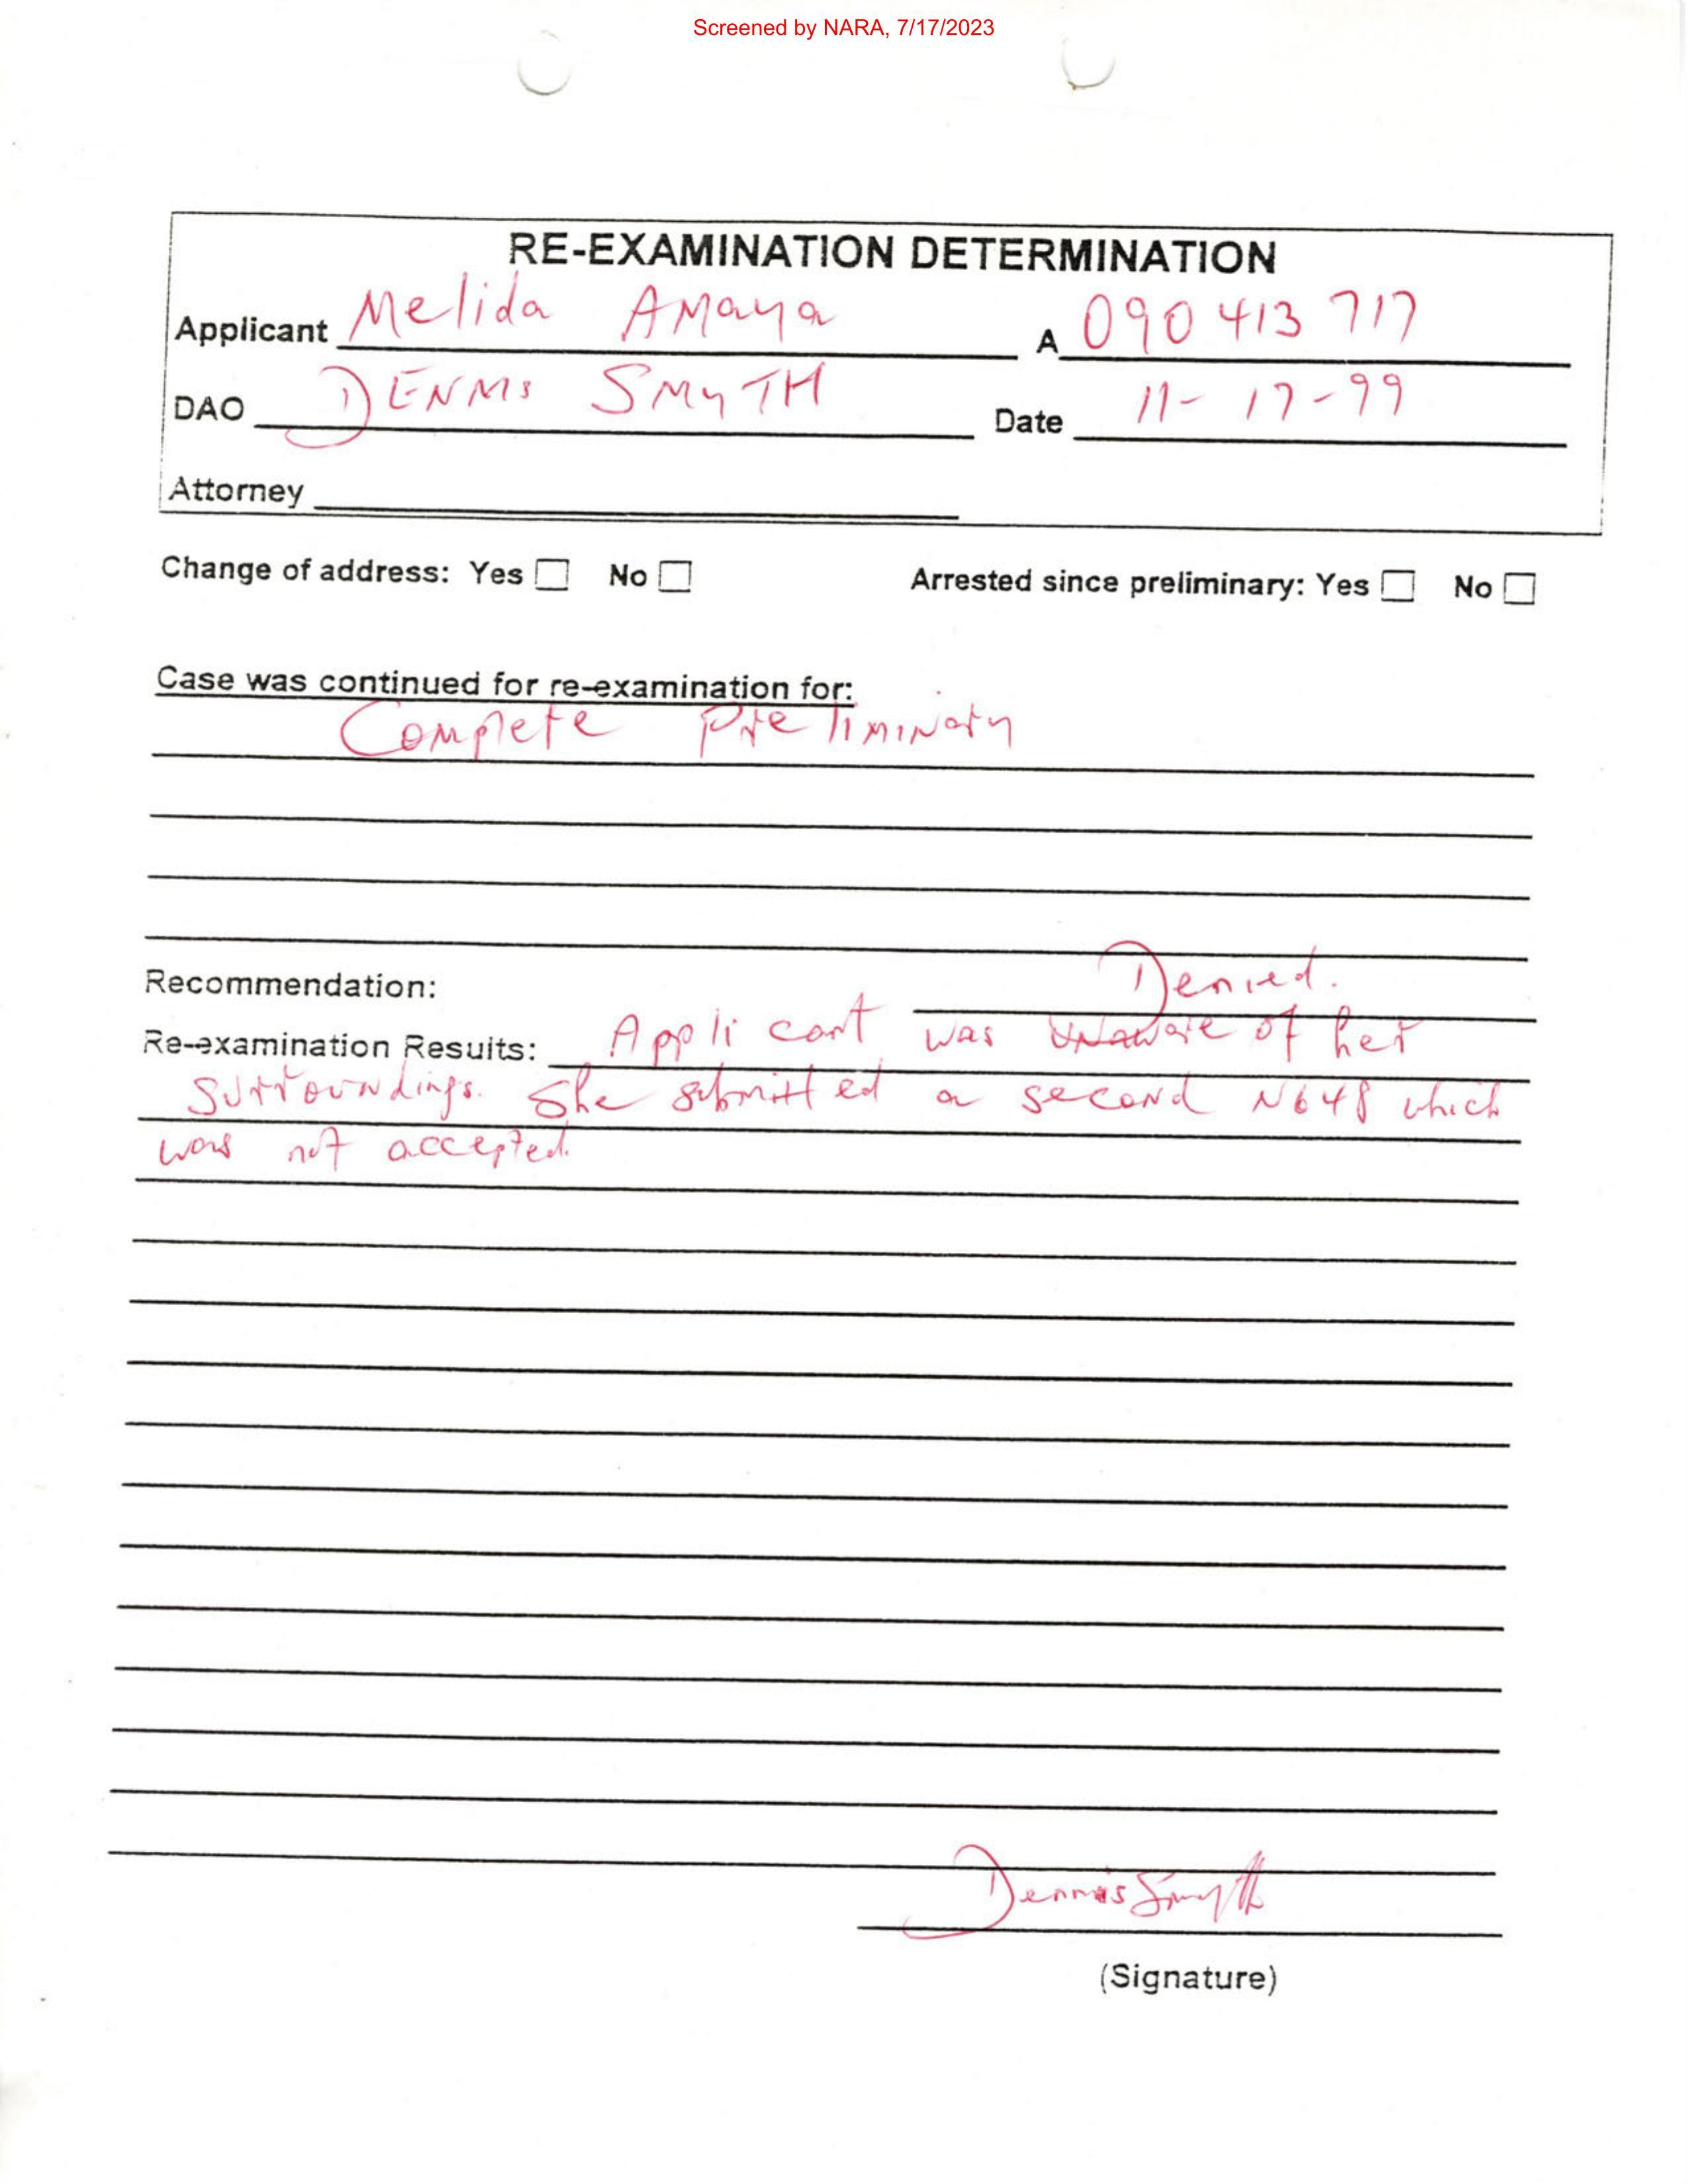 Screened by NARA, 7/17/2023
RE-EXAMINATION DETERMINATION
Applicant Melida AMaya A 090 413 717
DAO DENNIS SMyTH Date 11-17-99
Attorney
Change of address: Yes No Arrested since preliminary: Yes No
Case was continued for re-examination for:
Complete Preliminary
Recommendation: Denied.
Re-examination Results: Applicant was unaware of her
surroundings. She submitted a second N648 which
was not accepted.
Dennis Smyth
(Signature)